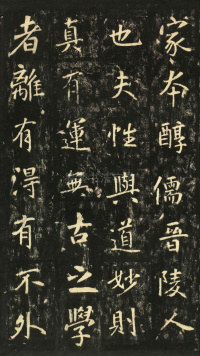 家本醇儒晉陵人
也夫性與道妙則
真有運無古之學
者離有得有不外